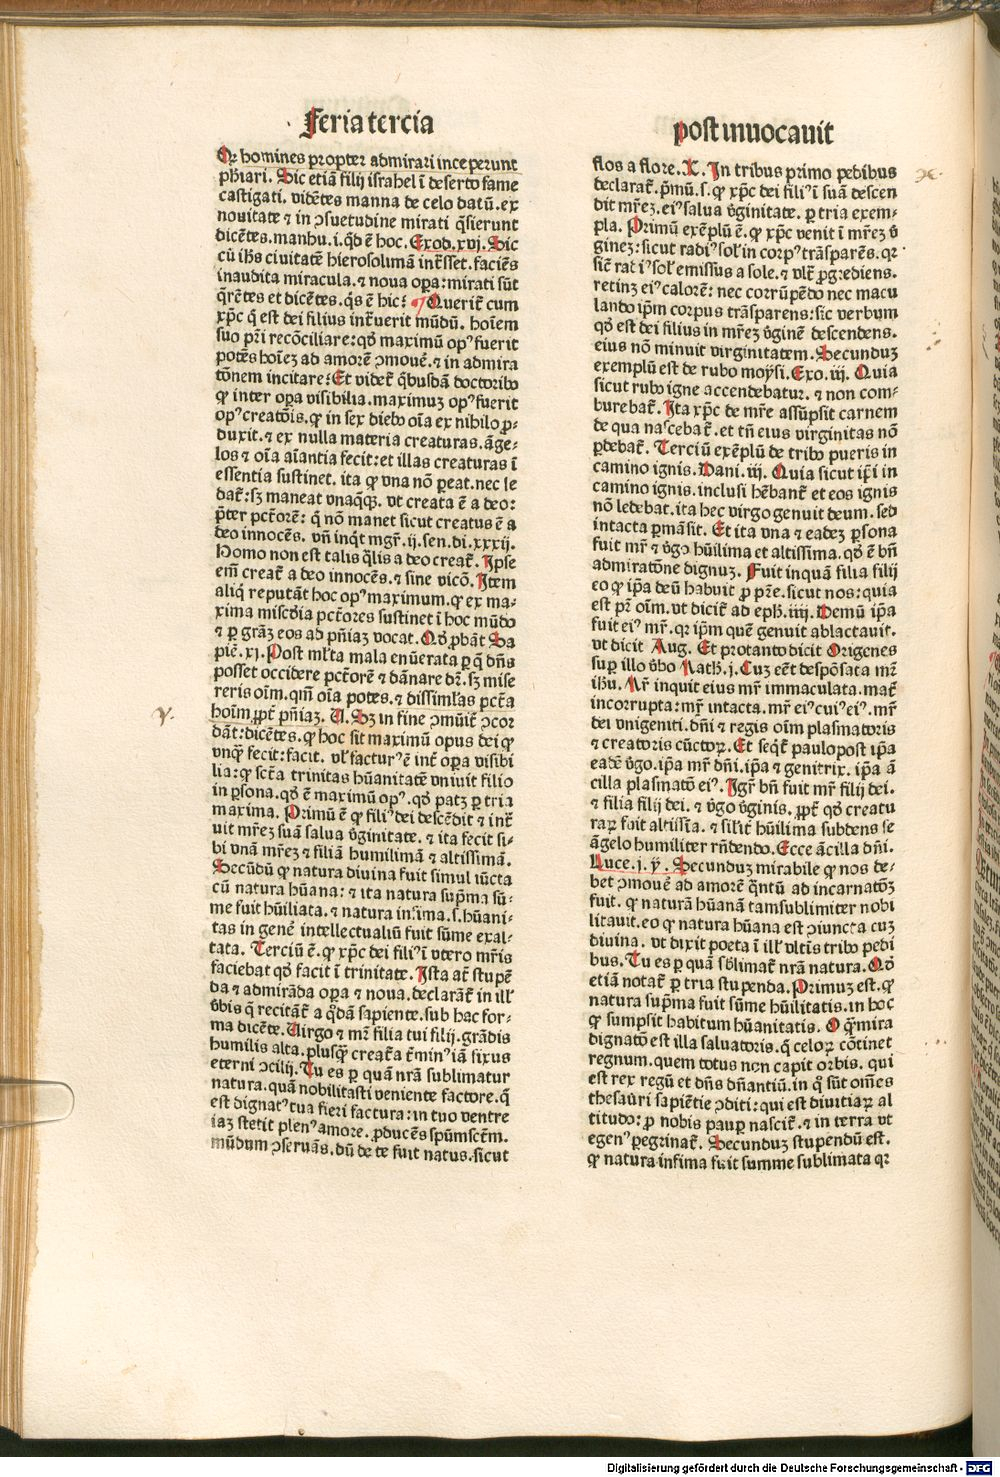 Feria tercia
Qꝛ homines propter admirari inceperunt
ph̄iari. Sic etiā filij israhel ī deserto fame
castigati. vidētes manna de celo datū. ex
nouitate ⁊ in ꝯsuetudine mirati q̄sierunt
dicētes. manhu. i. q̄d ē hoc. Exod. xvj. Sic
cū ih̄s ciuitatē hierosolimā intͣsset. faciēs
inaudita miracula. ⁊ noua oꝑa: mirati sūt
q̄rētes et dicētes. q̄s ē hic? Querit̄ cum
xp̄c q̄ est dei filius intͣuerit mūdū. hoīem
suo pr̄i recōciliare: qḋ maximū opꝰ fuerit
potēs hoīeꝫ ad amorē ꝯmouē. ⁊ in admira
tōnem incitare? Et videt̄ q̄busdā doctoribꝰ
ꝙ inter oꝑa visibilia. maximuꝫ opꝰ fuerit
opꝰ creatōis. ꝙ in sex diebꝰ oīa ex nihilo ꝓ-
duxit. ⁊ ex nulla materia creaturas. āge-
los ⁊ oīa aīantia fecit: et illas creaturas ī
essentia sustinet. ita ꝙ vna nō ꝑeat. nec le
dat̄: sꝫ maneat vnaq̄qꝫ. vt creata ē a deo:
p̄ter pctōrē: q̄ nō manet sicut creatus ē a
deo innocēs. vn̄ inq̄t mgr̄. ij. sen. di. xxxij.
Homo non est talis q̄lis a deo creat̄. Ipse
em̄ creat̄ a deo innocēs. ⁊ sine vicō. Item
aliq̄ reputāt hoc opꝰ maximum. ꝙ ex ma-
xima misc̄dia pctōres sustinet ī hoc mūdo
⁊ ꝑ gr̄aꝫ eos ad pn̄iaꝫ vocat. Qḋ ꝓbāt Sa
piē. xj. Post ml̄ta mala enūerata ꝑ q̄ dn̄s
posset occidere pctōrē ⁊ dānare dꝛ̄. sꝫ mise
reris oīm. qm̄ oīa potes. ⁊ dissiml̄as pctā
hoīm ꝓpt̄ pn̄iaꝫ. V. Sꝫ in fine ꝯmūit̄ ꝯcor
dāt: dicētes. ꝙ hoc sit maximū opus dei ꝙ
vnq̄ fecit: facit. vl̄ facturꝰ ē int̄ oꝑa visibi
lia: ꝙ sctā trinitas hūanitatē vniuit filio
in ꝑsona. qḋ ē maximū opꝰ. qḋ patꝫ ꝑ tria
maxima. Primū ē ꝙ filiꝰ dei descēdit ⁊ intͣ
uit mr̄eꝫ suā salua v̄ginitate. ⁊ ita fecit si-
bi vnā mr̄eꝫ ⁊ filiā humilimā ⁊ altissimā.
Secūdū ꝙ natura diuina fuit simul iūcta
cū natura hūana: ⁊ ita natura sup̄ma sū-
me fuit hūiliata. ⁊ natura infima. s. hūani-
tas in genē intellectualiū fuit sūme exal-
tata. Terciū ē. ꝙ xp̄c dei filiꝰ ī vtero mr̄is
faciebat qḋ facit ī trinitate. Ista at̄ stupē
da ⁊ admirāda oꝑa ⁊ noua. declarāt̄ in ill̄
v̄bis q̄ recitāt̄ a q̄dā sapiente. sub hac for-
ma dicēte. Virgo ⁊ mr̄ filia tui filij. grādis
humilis alta. plusq̄ creata t̄minꝰ iā fixus
eterni ꝯcilij. Tu es ꝑ quā nrā sublimatur
natura. quā nobilitasti veniente factore. q̄
est dignatꝰ tua fieri factura: in tuo ventre
iaꝫ stetit plenꝰ amore. ꝓducēs spūmsctm̄.
mūdum ꝯseruās. dū de te fuit natus. sicut
V.
post inuocauit
flos a flore. X. In tribus primo pedibus
declarat̄. p̄mū. s. ꝙ xp̄c dei filiꝰ ī suā descen
dit mr̄eꝫ. eiꝰ salua v̄ginitate. ꝑ tria exem-
pla. Primū exēplū ē. ꝙ xp̄c venit ī mr̄eꝫ v̄
gineꝫ: sicut radiꝰ sol̄ in corpꝰ trāsparēs. qꝛ
sic̄ radiꝰ sol̄ emissus a sole. ⁊ vlt̄ ꝓgrediens.
retinꝫ eiꝰ calorē: nec corrūpēdo nec macu
lando ip̄m corpus trāsparens: sic verbum
qḋ est dei filius in mr̄eꝫ v̄ginē descendens.
eius nō minuit virginitatem. Secunduꝫ
exemplū est de rubo moysi. Exo. iij. Quia
sicut rubꝰ igne accendebatur. ⁊ non com-
burebat̄. Ita xp̄c de mr̄e assūpsit carnem
de qua nascebat̄. et tn̄ eius virginitas nō
ꝑdebat̄. Terciū exēplū de tribꝰ pueris in
camino ignis. Dani. iij. Quia sicut ip̄i in
camino ignis. inclusi hēbant̄ et eos ignis
nō ledebat. ita hec virgo genuit deum. sed
intacta ꝑmāsit. Et ita vna ⁊ eadeꝫ ꝑsona
fuit mr̄ ⁊ v̄go hūilima et altissima. qḋ ē bn̄
admiratōne dignuꝫ. Fuit inquā filia filij
eo ꝙ ip̄a deū habuit ꝓ pr̄e. sicut nos: quia
est pr̄ oīm. vt dicit̄ ad eph. iiij. Demū ip̄a
fuit eiꝰ mr̄. qꝛ ip̄m quē genuit ablactauit.
vt dicit Aug. Et protanto dicit Origenes
suꝑ illo v̄bo Math. j. Cuꝫ eēt despōsata mr̄
ihū. Mr̄ inquit eius mr̄ immaculata. mat̄
incorrupta: mr̄ intacta. mr̄ eiꝰ cuiꝰ eiꝰ. mr̄
dei vnigeniti. dn̄i ⁊ regis oīm plasmatoris
⁊ creatoris cūctoꝝ. Et seq̄t̄ paulopost ip̄a
eadē v̄go. ip̄a mr̄ dn̄i. ip̄a ⁊ genitrix. ip̄a ā
cilla plasmatō eiꝰ. Igr̄ bn̄ fuit mr̄ filij dei.
⁊ filia filij dei. ⁊ v̄go v̄ginis. ꝓpt̄ qḋ creatu
raꝝ fuit altissīa. ⁊ sil̄it̄ hūilima subdens se
āgelo humiliter rn̄dendo. Ecce ācilla dn̄i.
Luce. j. y. Secunduꝫ mirabile ꝙ nos de-
bet ꝯmouē ad amorē q̄ntū ad incarnatōꝫ
fuit. ꝙ naturā hūanā tamsublimiter nobi
litauit. eo ꝙ natura hūana est ꝯiuncta cuꝫ
diuina. vt dixit poeta ī ill̄ vltīs tribꝰ pedi
bus. Tu es ꝑ quā sb̄limat̄ nrā natura. Qḋ
etiā notat̄ ꝑ tria stupenda. Primuꝫ est. ꝙ
natura sup̄ma fuit sūme hūilitatis. in hoc
ꝙ sumpsit habitum hūanitatis. O q̄ mira
dignatō est illa saluatoris. q̄ celoꝝ cōtinet
regnum. quem totus non capit orbis. qui
est rex regū et dn̄s dn̄antiū. in q̄ sūt om̄es
thesauri sapiētie ꝯditi: qui est diuitiaꝝ al
titudo: ꝓ nobis pauꝑ nascit̄. ⁊ in terra vt
egenꝰ ꝑegrinat̄. Secunduꝫ stupendū est.
ꝙ natura infima fuit summe sublimata qꝛ
x.
Digitalisierung gefördert durch die Deutsche Forschungsgemeinschaft - DFG